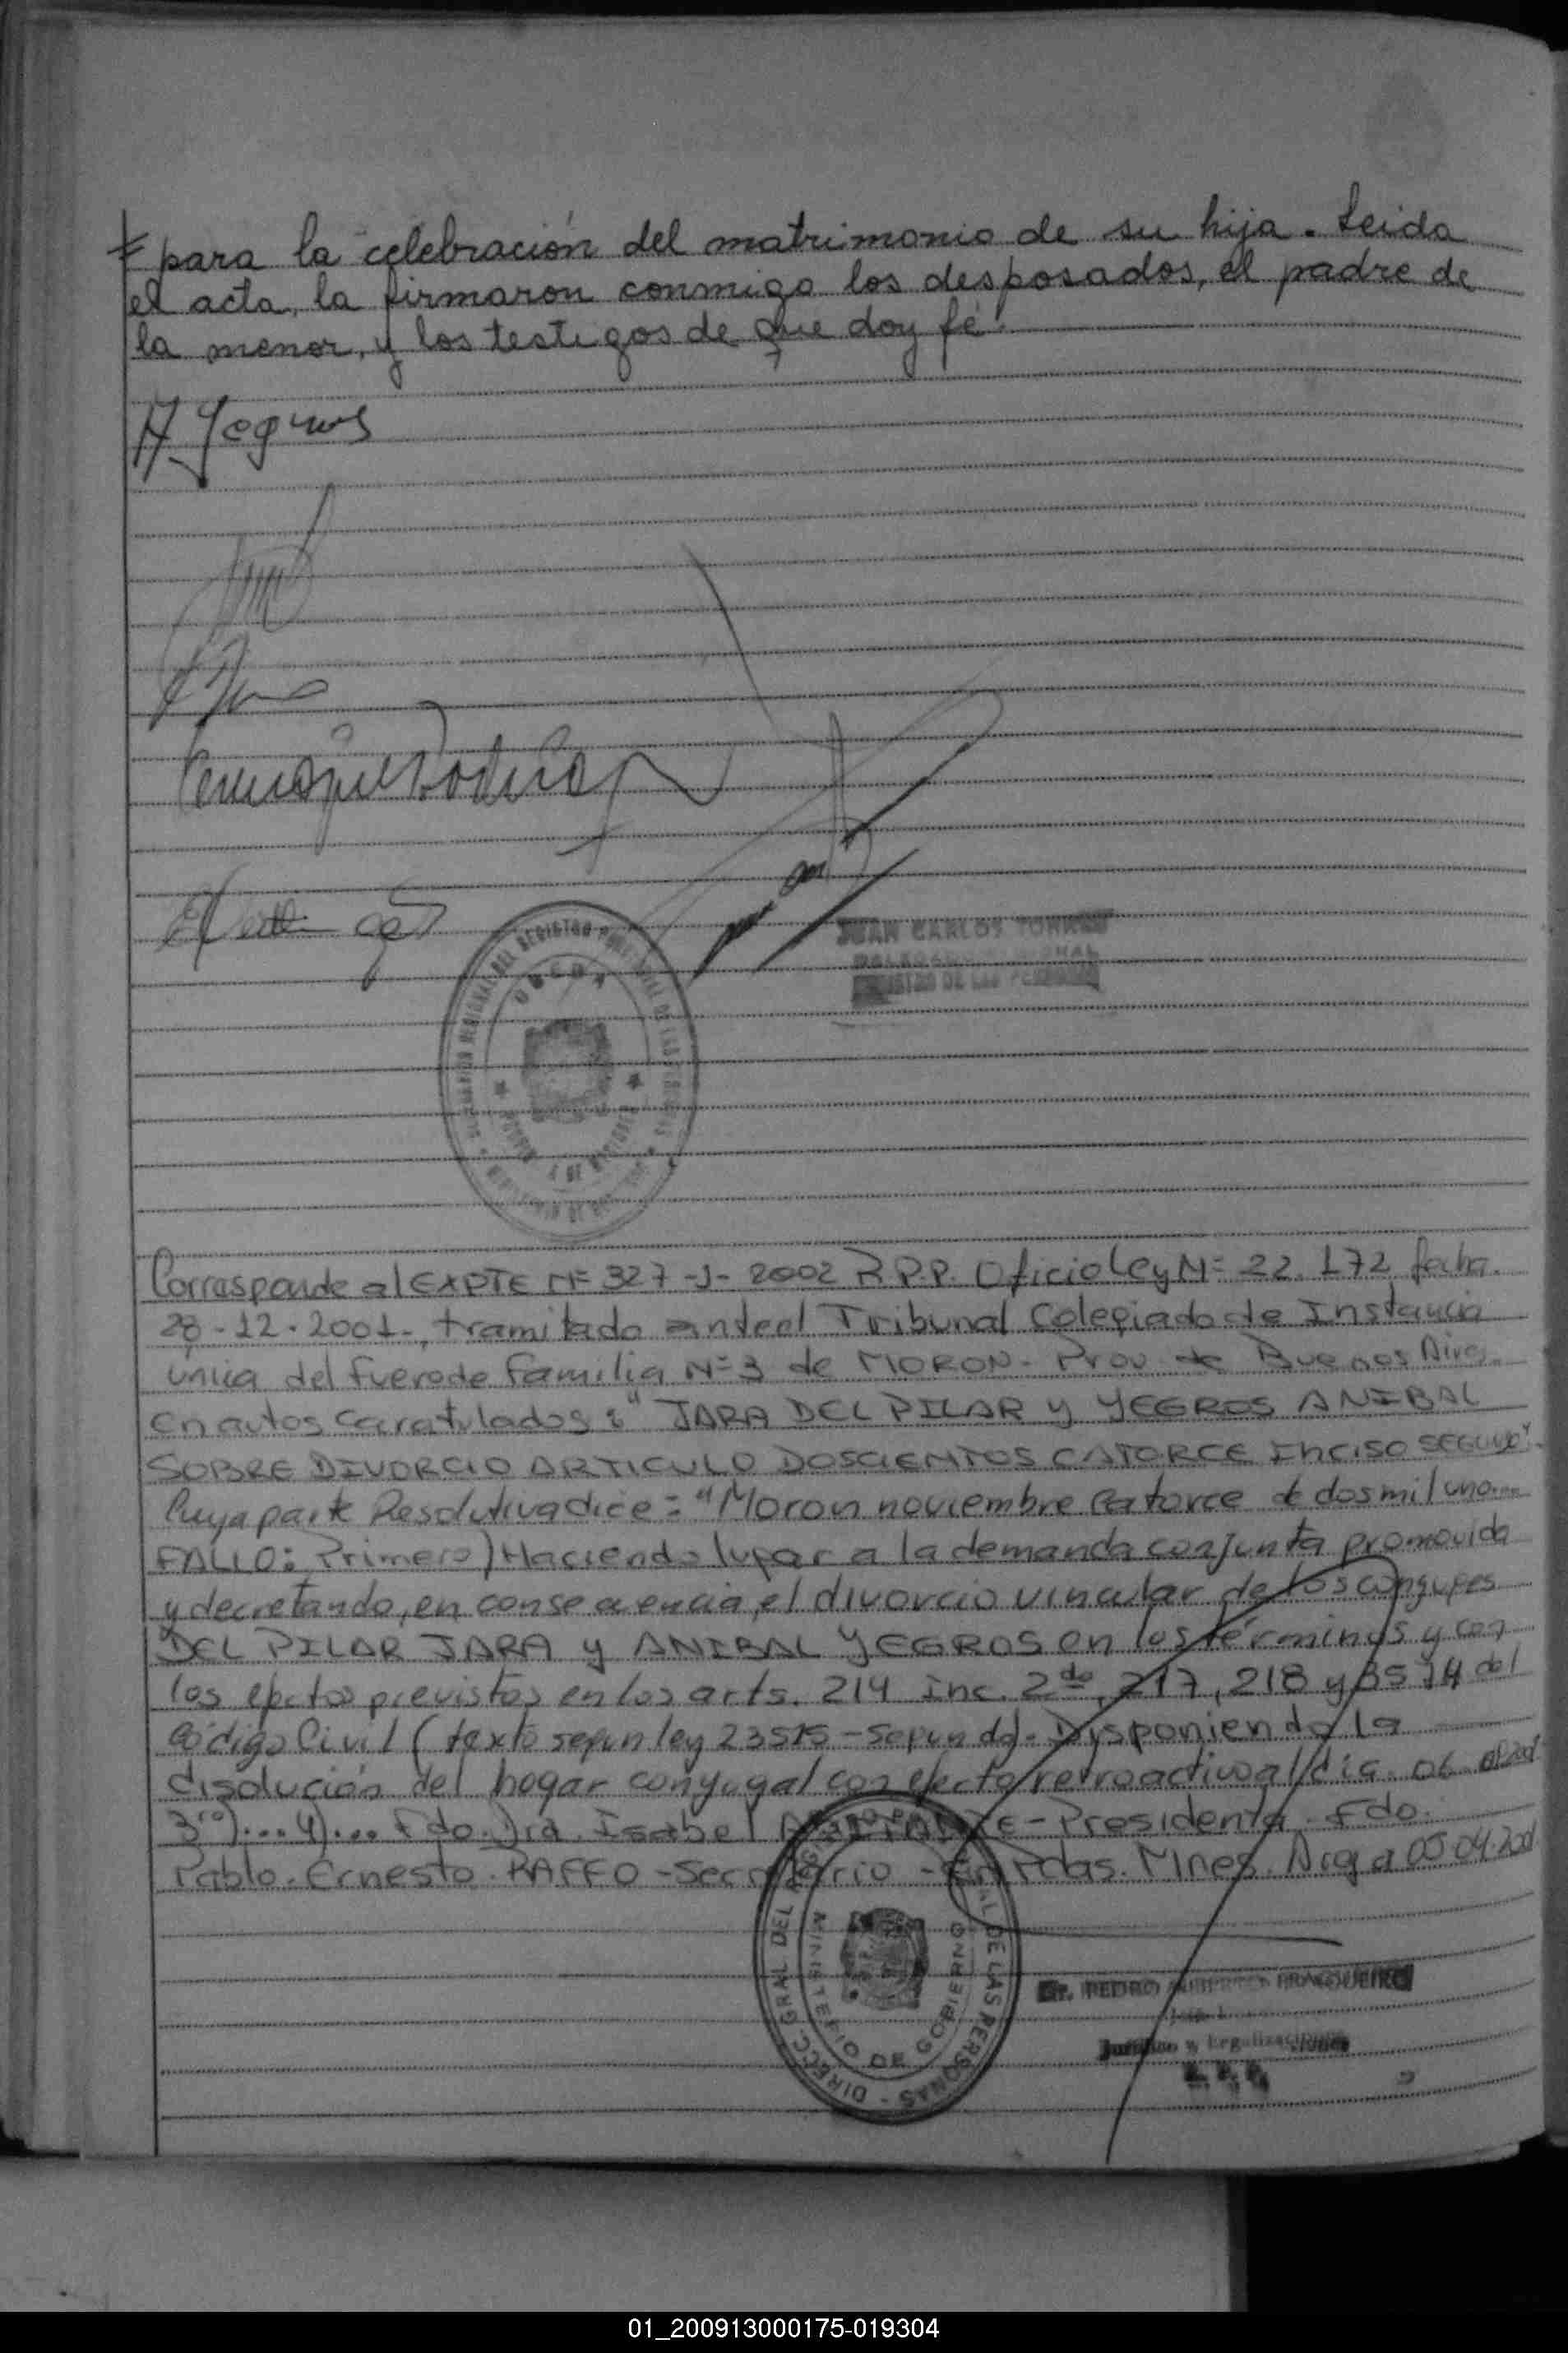 para la celebración del matrimonio de su hija. Leida
el acta, la firmaron conmigo los desposados, el padre de
la menor, y los testigos de que doy fé.
A Yegros
JUAN CARLOS TORRES
REGISTRO DE LAS PERSONAS
OBERA
Corresponde al EXPTE Nº 327-J-2002 R.P.P. Oficio Ley Nº 22.172 fecha
28-12-2001-, tramitado ante el Tribunal Colegiado de Instancia
única del fuero de Familia Nº 3 de MORON- Prov. de Buenos Aires
en autos caratulados: "JARA DEL PILAR Y YEGROS ANIBAL
SOBRE DIVORCIO ARTICULO DOSCIENTOS CATORCE INCISO SEGUNDO"
Cuya parte Resolutiva dice: "Moron noviembre catorce de dos mil uno...
FALLO: Primero) Haciendo lugar a la demanda conjunta promovida
y decretando, en consecuencia, el divorcio vincular de los conyuges
DEL PILAR JARA y ANIBAL YEGROS en los términos y con
los efectos previstos en los arts. 214 Inc. 2do, 217, 218 y 3574 del
Código Civil (texto segun ley 23515 - Segundo)- Disponiendo la
disolución del hogar conyugal con efecto retroactivo al día 06
3ro)...4)... Fdo. Dra. Isabel - Presidenta. Fdo.
Pablo. Ernesto. RAFFO - Secretario - En Pdas. Mnes. Arg a 05-04
DIRECC. GRAL. DEL REG. DE LAS PERSONAS
MINISTERIO DE GOBIERNO
Dr. PEDRO
Jurídico y Legalizaciones
R. P. P.
01_200913000175-019304